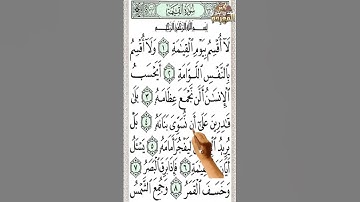 سُورَةُ القِيَامَةِ
بِسْمِ اللَّهِ الرَّحْمَٰنِ الرَّحِيمِ
لَآ أُقْسِمُ بِيَوْمِ ٱلْقِيَٰمَةِ ١ وَلَآ أُقْسِمُ
بِٱلنَّفْسِ ٱللَّوَّامَةِ ٢ أَيَحْسَبُ
ٱلْإِنسَٰنُ أَلَّن نَّجْمَعَ عِظَامَهُۥ ٣ بَلَىٰ
قَٰدِرِينَ عَلَىٰٓ أَن نُّسَوِّيَ بَنَانَهُۥ ٤ بَلْ
يُرِيدُ ٱلْإِنسَٰنُ لِيَفْجُرَ أَمَامَهُۥ ٥ يَسْـَٔلُ
أَيَّانَ ٱلْقِيَٰمَةِ ٦ فَإِذَا بَرِقَ ٱلْبَصَرُ ٧
وَخَسَفَ ٱلْقَمَرُ ٨ وَجُمِعَ ٱلشَّمْسُ